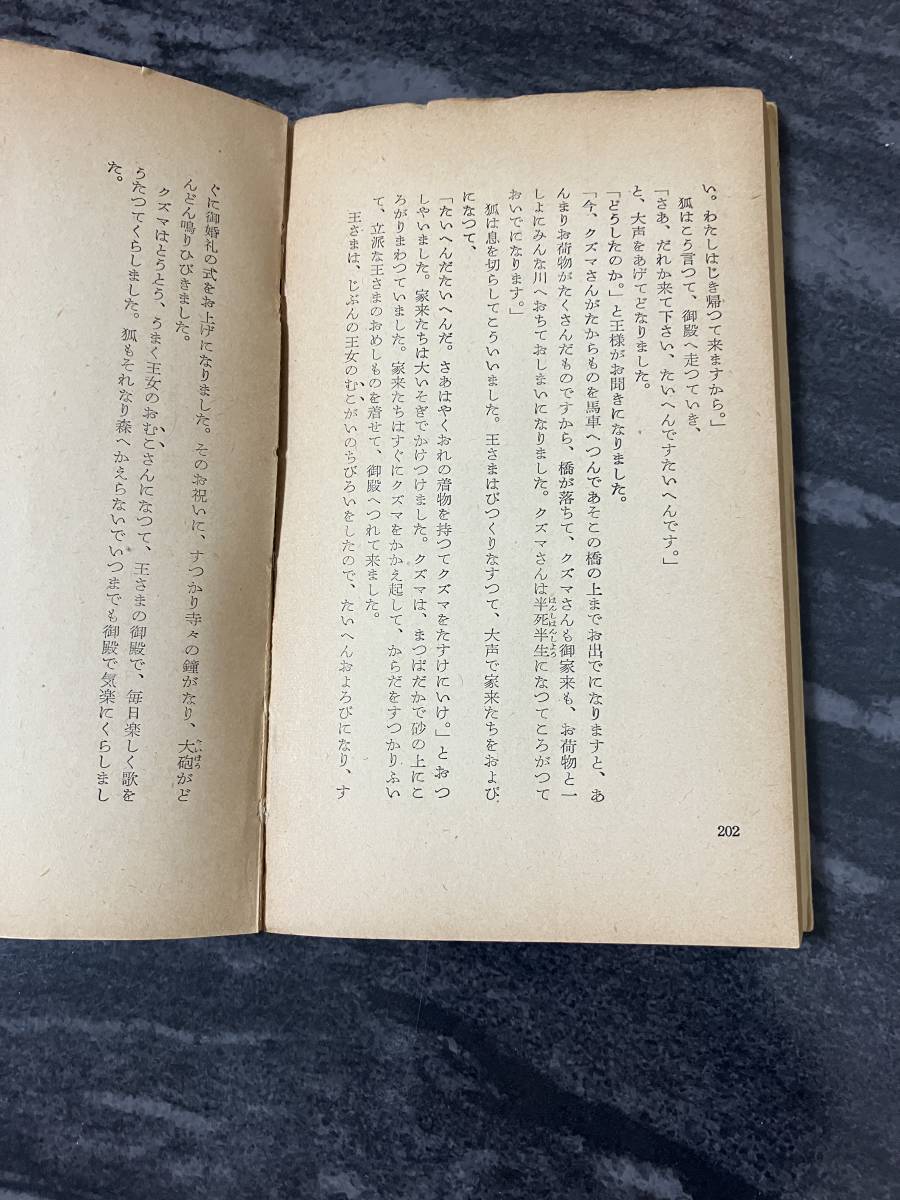 い。わたしはじき帰つて来ますから。」
狐はこう言つて、御殿へ走つていき、
「さあ、だれか来て下さい、たいへんですたいへんです。」
と、大声をあげてどなりました。
「どうしたのか。」と王様がお聞きになりました。
「今、クズマさんがたからものを馬車へつんであそこの橋の上までお出でになりますと、あ
んまりお荷物がたくさんだものですから、橋が落ちて、クズマさんも御家来も、お荷物と一
しよにみんな川へおちておしまいになりました。クズマさんは半死半生になつてころがつて
はんしはんしよう
おいでになります。」
狐は息を切らしてこういいました。王さまはびつくりなすつて、大声で家来たちをおよび
になつて、
「たいへんだたいへんだ。さあはやくおれの着物を持つてクズマをたすけにいけ。」とおつ
しやいました。家来たちは大いそぎでかけつけました。クズマは、まつぱだかで砂の上にこ
ろがりまわつていました。家来たちはすぐにクズマをかかえ起して、からだをすつかりふい
て、立派な王さまのおめしものを着せて、御殿へつれて来ました。
王さまは、じぶんの王女のむこがいのちびろいをしたので、たいへんおよろびになり、す
202
ぐに御婚礼の式をお上げになりました。そのお祝いに、すつかり寺々の鐘がなり、大砲がど
たいほう
んどん鳴りひびきました。
クズマはとうとう、うまく王女のおむこさんになつて、王さまの御殿で、毎日楽しく歌を
うたつてくらしました。狐もそれなり森へかえらないでいつまでも御殿で気楽にくらしまし
た。